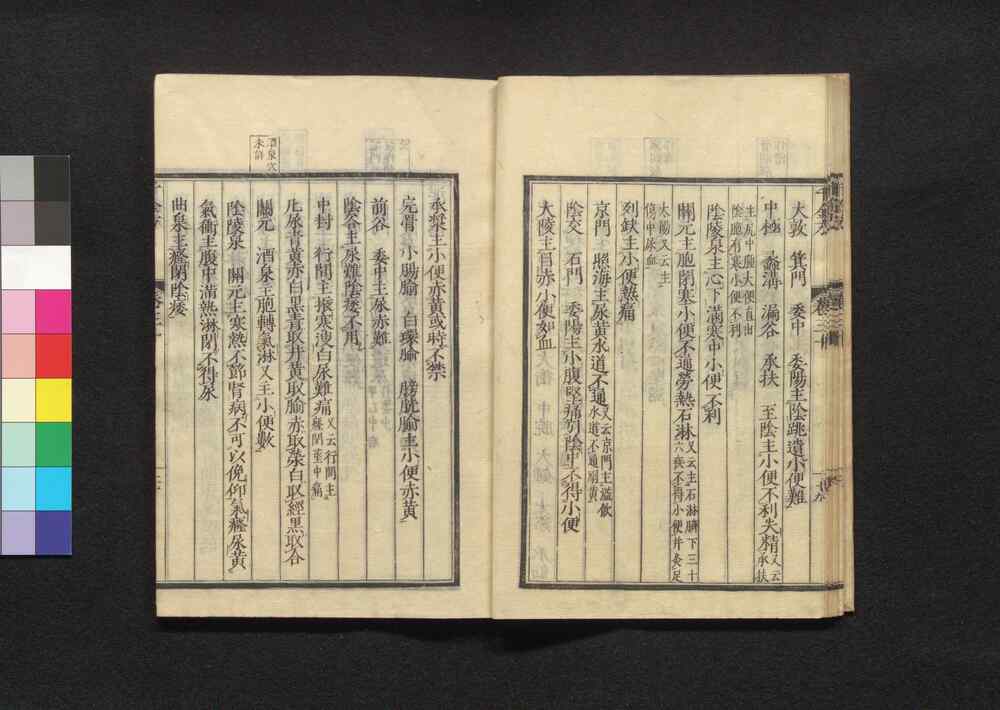 大敦 箕門 委中 委陽主陰跳遺小便難
中極 蠡溝 漏谷 承扶 至陰主小便不利失精又云承扶
主尻中腫大便直出陰胞有寒小便不利
陰陵泉主心下滿寒中小便不利
關元主胞閉塞小便不通勞熱石淋又云主石淋臍下三十六疾不得小便并灸足
太陽又云主傷中尿血
列缺主小便熱痛
京門 照海主尿黃水道不通又云京門主溢飲水道不通溺黃
陰交 石門 委陽主小腹堅痛引陰中不得小便
大陵主目赤小便如血
承漿主小便赤黃或時不禁
完骨 小腸腧 白環腧 膀胱腧主小便赤黃
前谷 委中主尿赤難
陰谷主尿難陰痿不用
中封 行間主振寒溲白尿難痛又云行間主癃閉莖中痛
凡尿青黃赤白黑青取井黃取腧赤取滎白取經黑取合
關元 酒泉主胞轉氣淋又主小便數
陰陵泉 關元主寒熱不節腎病不可以俛仰氣癃尿黃
氣衝主腹中滿熱淋閉不得尿
曲泉主癃閉陰痿
酒泉穴未詳
卷三十